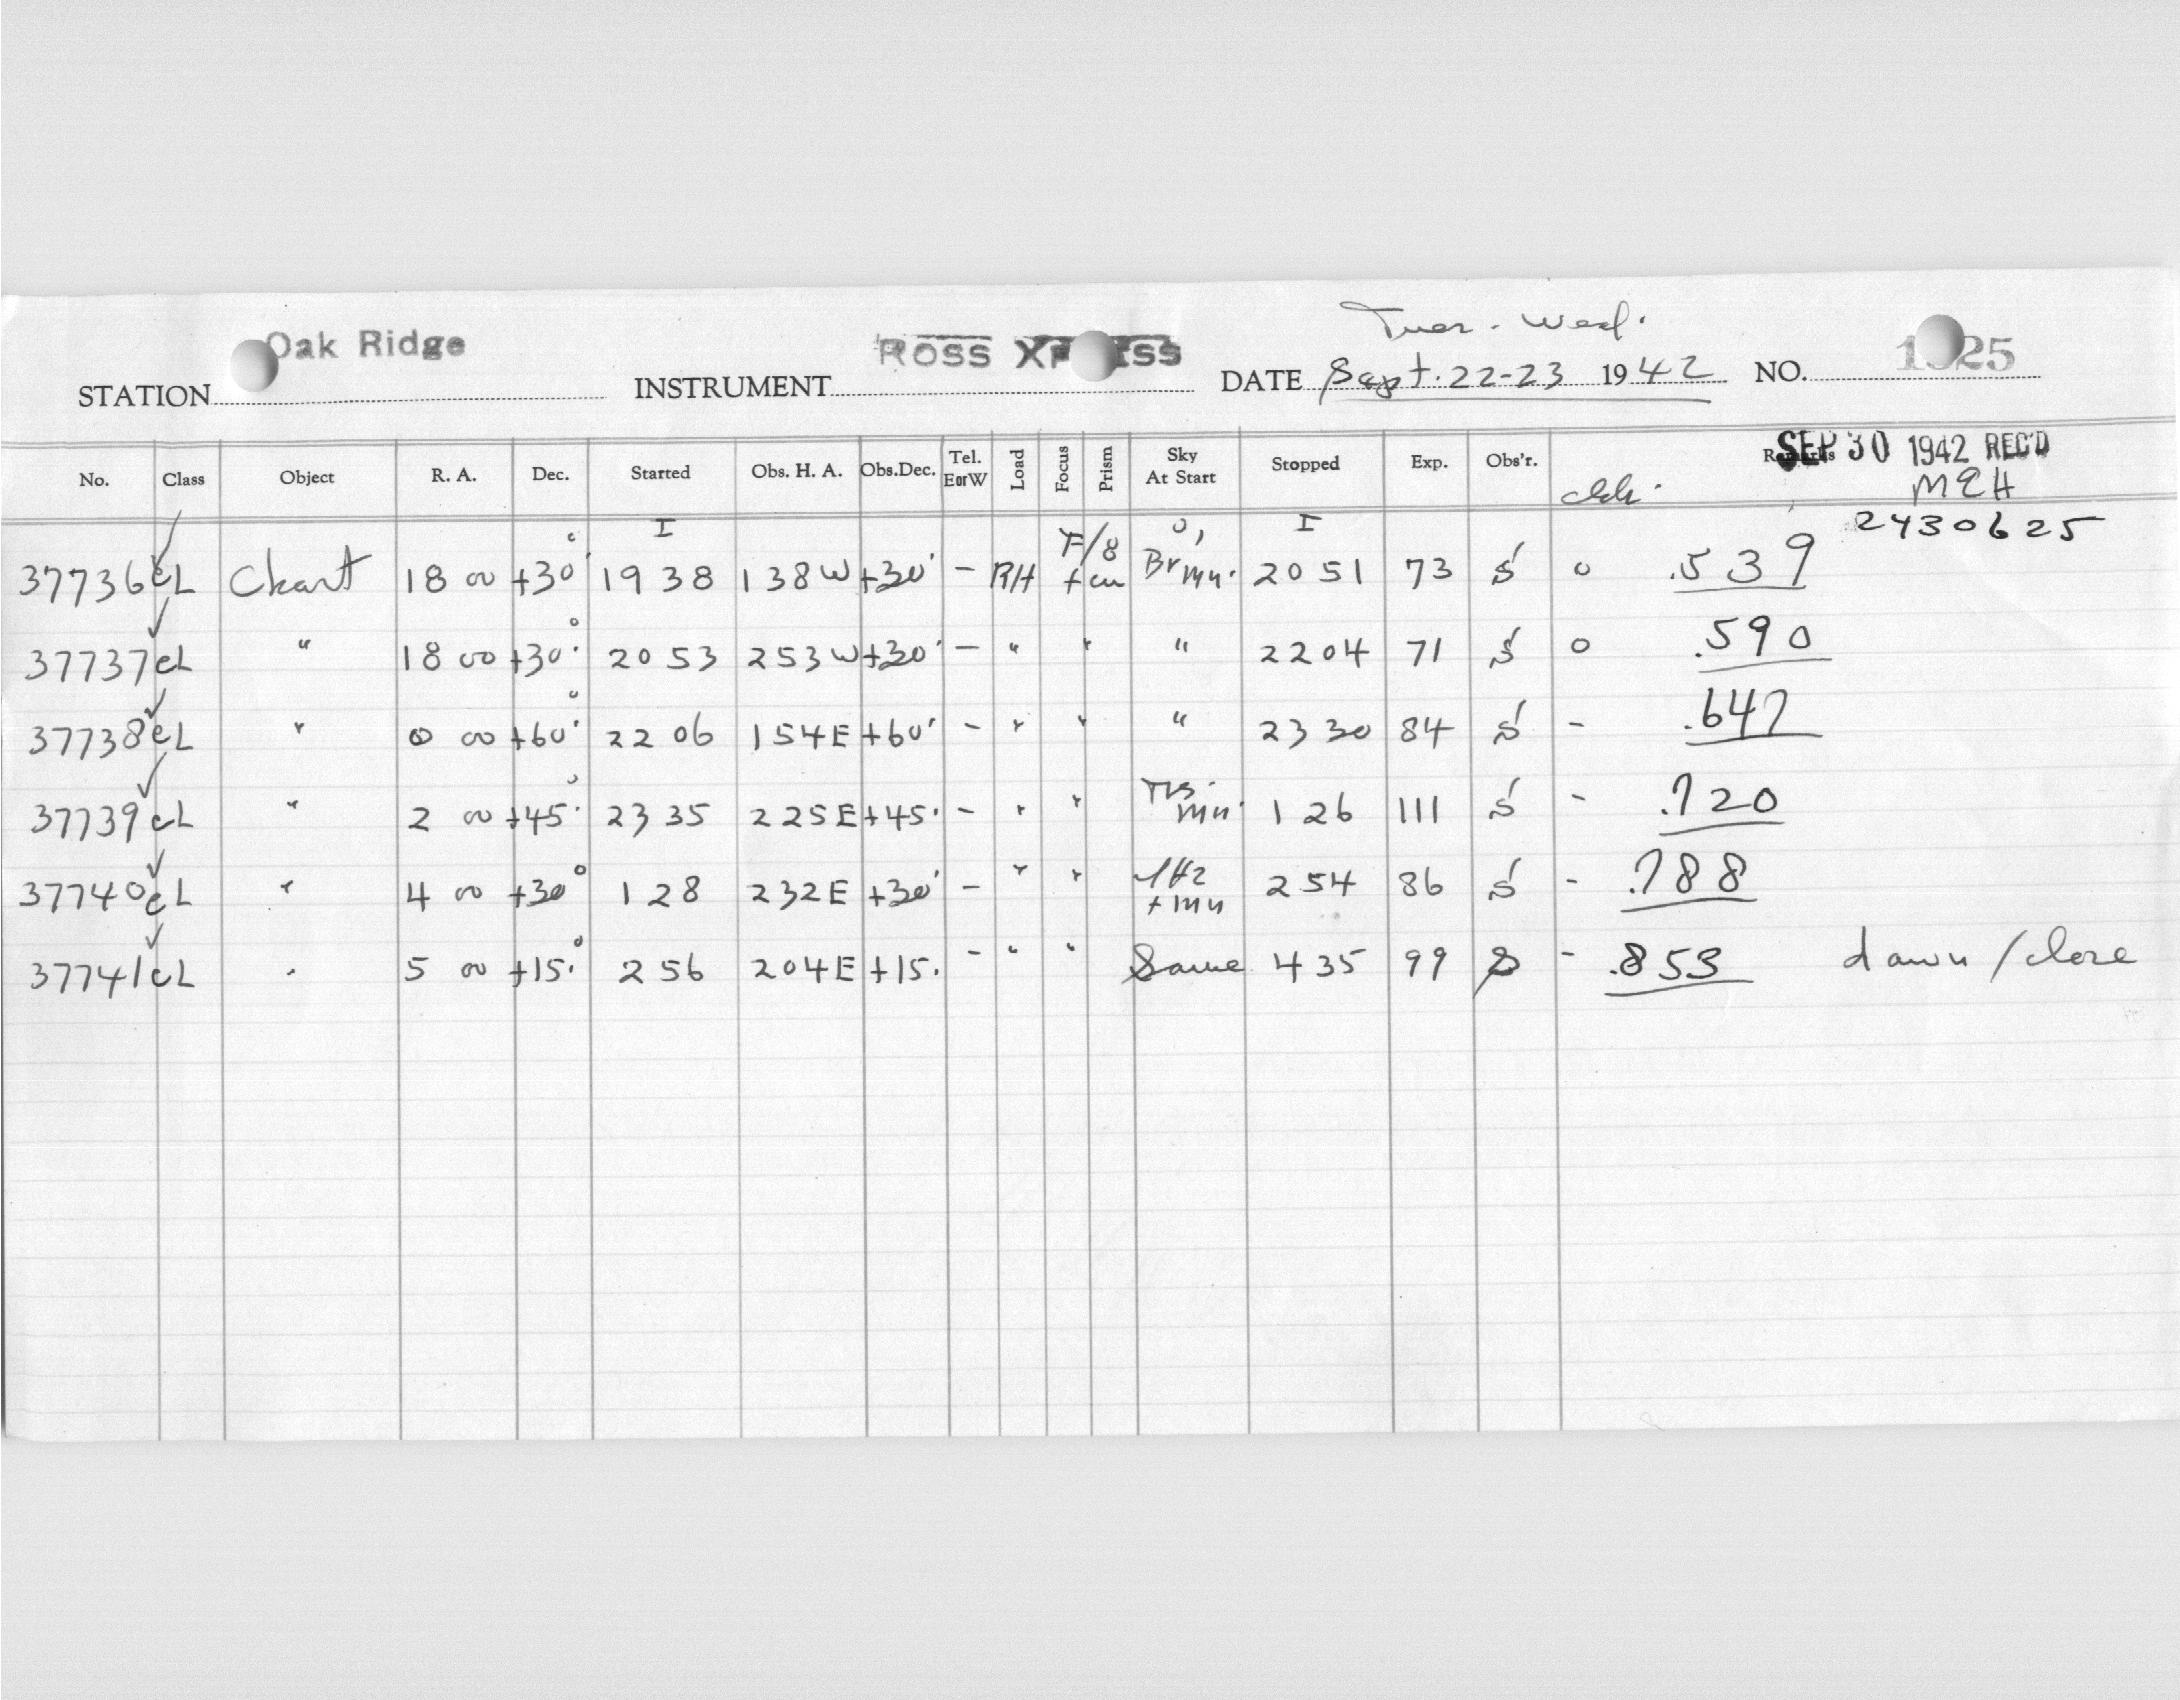 Oak Ridge ROSS Tues. Wed.
STATION INSTRUMENT DATE Sept. 22-23 1942 NO. 25
SEP 30 1942 REC'D
No. Class Object R. A. Dec. Started Obs. H. A. Obs.Dec. Tel. EorW Load Focus Prism Sky At Start Stopped Exp. Obs'r. Remarks
MEH
I I 2430625
37736 cL Chart 18 00 +30° 19 38 1 38 W +30° - RH F/8 Br mn. 20 51 73 S 0 .539
37737 cL " 18 00 +30° 20 53 2 53 W +30° - " " " 22 04 71 S 0 .590
37738 cL " 0 00 +60° 22 06 1 54 E +60° - " " " 23 30 84 S - .647
37739 cL " 2 00 +45° 23 35 2 25 E +45° - " " mn. 1 26 111 S - .720
37740 cL " 4 00 +30° 1 28 2 32 E +30° - " " + mn 2 54 86 S - .788
37741 cL " 5 00 +15° 2 56 2 04 E +15° - " " Same 4 35 99 S - .853 dawn / close